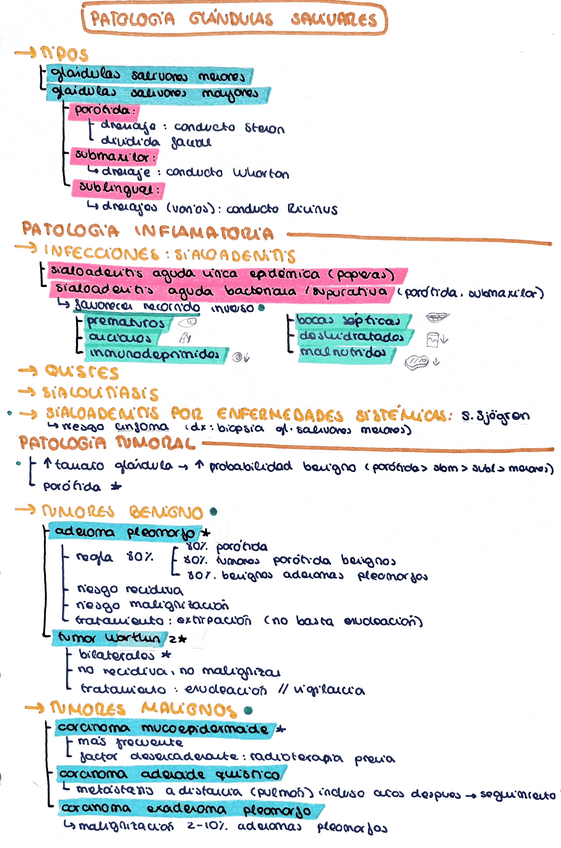 PATOLOGÍA GLÁNDULAS SALIVARES
→ TIPOS
glándulas salivares menores
glándulas salivares mayores
parótida:
drenaje: conducto Stenon
dividida facial
submaxilar:
↳ drenaje: conducto Wharton
sublingual:
↳ drenajes (varios): conducto Rivinus
PATOLOGÍA INFLAMATORIA
→ INFECCIONES: SIALOADENITIS
sialoadenitis aguda vírica epidémica (paperas)
sialoadenitis aguda bacteriana / supurativa (parótida, submaxilar)
↳ favorecer recorrido inverso
prematuros
bocas sépticas
ancianos
deshidratados
inmunodeprimidos ↓
malnutridos ↓
→ QUISTES
→ SIALOLITIASIS
→ SIALOADENITIS POR ENFERMEDADES SISTÉMICAS: S. Sjögren
↳ riesgo linfoma (dx: biopsia gl. salivares menores)
PATOLOGÍA TUMORAL
↑ tamaño glándula → ↑ probabilidad benigno (parótida > sbm > subl > menores)
parótida *
→ TUMORES BENIGNO
adenoma pleomorfo *
regla 80%
80% parótida
80% tumores parótida benignos
80% benignos adenomas pleomorfos
riesgo recidiva
riesgo malignización
tratamiento: extirpación (no basta enucleación)
tumor Warthin 2*
bilaterales *
no recidiva, no malignizas
tratamiento: enucleación // vigilancia
→ TUMORES MALIGNOS
carcinoma mucoepidermoide *
más frecuente
factor desencadenante: radioterapia previa
carcinoma adenoide quístico
↳ metástasis a distancia (pulmón) incluso años después → seguimiento
carcinoma exadenoma pleomorfo
↳ malignización 2-10% adenomas pleomorfos